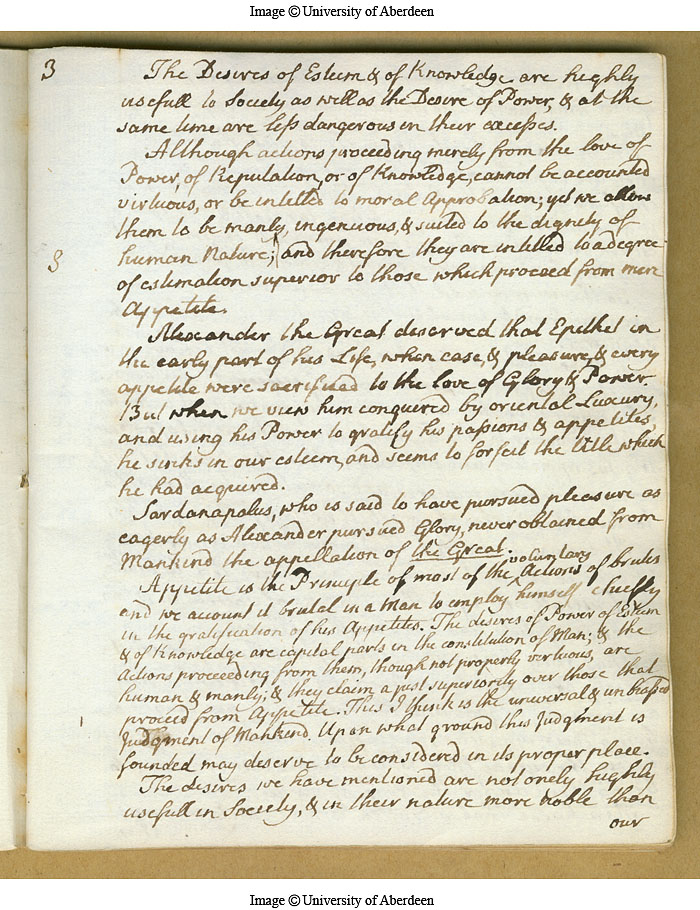 Image © University of Aberdeen
3
The Desires of Esteem & of Knowledge are highly
usefull to Society as well as the Desire of Power, & at the
same time are less dangerous in their excesses.
Although actions proceeding merely from the love of
Power, of Reputation, or of Knowledge, cannot be accounted
virtuous, or be intitled to moral Approbation; yet we allow
them to be manly, ingenuous, & suited to the dignity of
human Nature; and therefore they are intitled to a degree
3
of estimation superior to those which proceed from mere
Appetite.
Alexander the Great deserved that Epithet in
the early part of his Life, when ease, & pleasure, & every
appetite were sacrificed to the love of Glory & Power.
But when we view him conquered by oriental Luxury,
and using his Power to gratify his passions & appetites,
he sinks in our esteem, and seems to forfeit the title which
he had acquired.
Sardanapalus, who is said to have pursued pleasure as
eagerly as Alexander pursued Glory, never obtained from
Mankind the appellation of the Great.
voluntary
Appetite is the Principle of most of the Actions of brutes
and we account it brutal in a Man to employ himself cheifly
in the gratification of his Appetites. The desires of Power of Esteem
& of Knowledge are capital parts in the constitution of Man; & the
Actions proceeding from them, though not properly vertuous, are
human & manly; & they claim a just superiority over those that
proceed from Appetite. This I think is the universal & unbiassed
Judgment of Mankind. Upon what ground this Judgment is
founded may deserve to be considered in its proper place.
The desires we have mentioned are not onely highly
usefull in Society, & in their nature more noble than
our
Image © University of Aberdeen